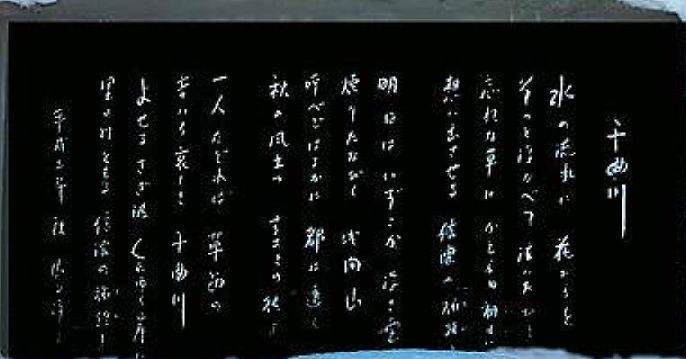 千曲川
水の流れに 花びらを
そっと浮かべて 泣いたひと
忘れな草に かえらぬ初恋を
想い出させる 信濃の旅路よ
明日はいずこか 浮き雲に
煙りたなびく 浅間山
呼べどはるかに 都は遠く
秋の風立つ すすきの径よ
一人たどれば 草笛の
音いろ哀しき 千曲川
よせるさざ波 くれゆく岸に
里の灯ともる 信濃の旅路よ
平成 年 秋